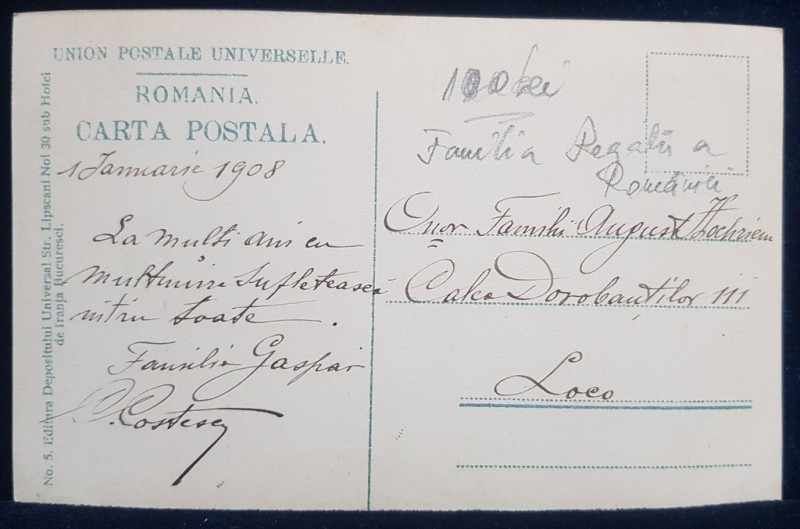 UNION POSTALE UNIVERSELLE.
ROMANIA.
CARTA POSTALA.
1 Ianuarie 1908
La multi ani cu
multumire sufletească
intru toate.
Familia Gaspar
Costescu
No. 5. Editura Depositului Universal Str. Lipscani Nol 30 sub Hotel
de Franţa Bucuresci.
100 lei
Familia Regală a
României
Onor Familii August
Calea Dorobanţilor 111
Loco